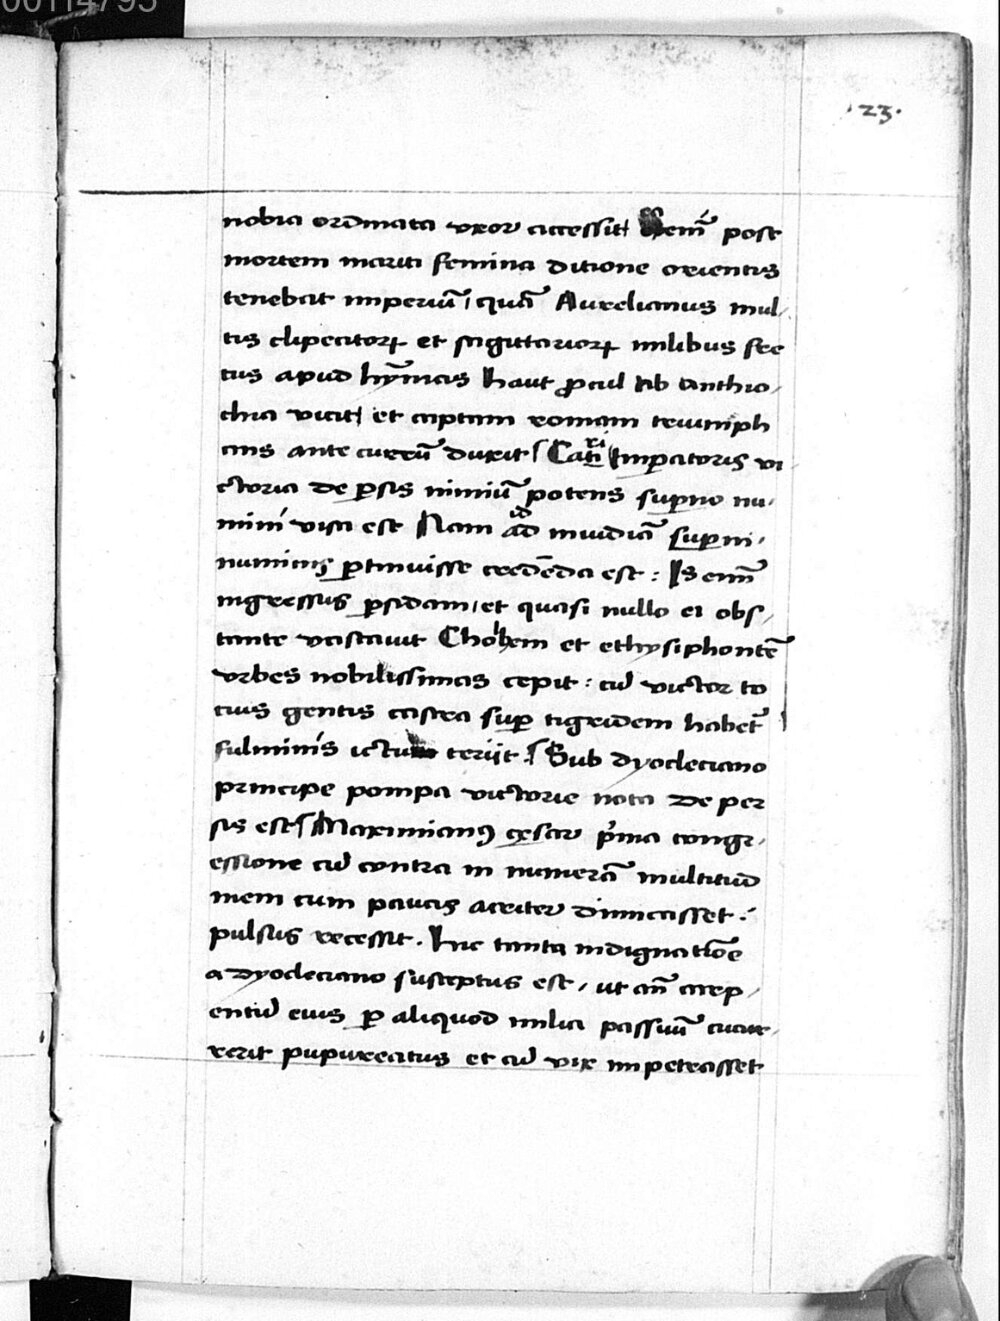 00114795
23.
nobia ordinata vxor accessit Hec eni᷉ post
mortem mariti femina ditione orientis
tenebat imperiu᷉ / qua᷉ Aurelianus mul-
tis clipeatorꝝ et sagittariorꝝ milibus fre
tus apud hy᷉mas haut ꝓcul ab anthio-
chia vicit et captam romam triumph
ans ante curru᷉ duxit Cari Imꝑatoris vi
ctoria de ꝑsis nimiu᷉ potens suꝑno nu-
mini visa est Nam ad inuidia᷉ suꝑni-
numinis ꝑtinuisse crede᷉da est : Is eni᷉
ingressus ꝑsidam / et quasi nullo ei obs-
tante vastauit Choblem et ethysiphonte᷉
vrbes nobilissimas cepit : cu᷉ victor to
cius gentis castra suꝑ tigridem habet᷉
fulminis ictu teriit : Sub dyocleciano
principe pompa victorie nota de per
sis est Maximianꝯ cesar p᷉ma congr-
essione cu᷉ contra in numera᷉ multitud
inem cum paucis acriter dimicasset :
pulsus recessit . Hic tanta indignatio᷉e
a dyocleciano susceptus est / ut an᷉ carp-
entu᷉ eius ꝑ aliquod milia passuu᷉ cucur-
rerit pupureatus et cu᷉ vix impetrasset